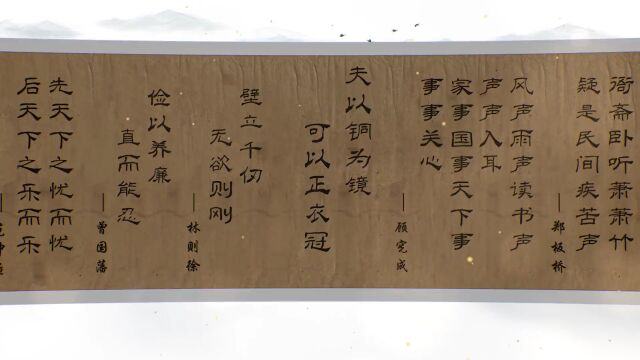 衙斋卧听萧萧竹
疑是民间疾苦声
——郑板桥
风声雨声读书声
声声入耳
家事国事天下事
事事关心
——顾宪成
夫以铜为镜
可以正衣冠
壁立千仞
无欲则刚
——林则徐
俭以养廉
直而能忍
——曾国藩
先天下之忧而忧
后天下之乐而乐